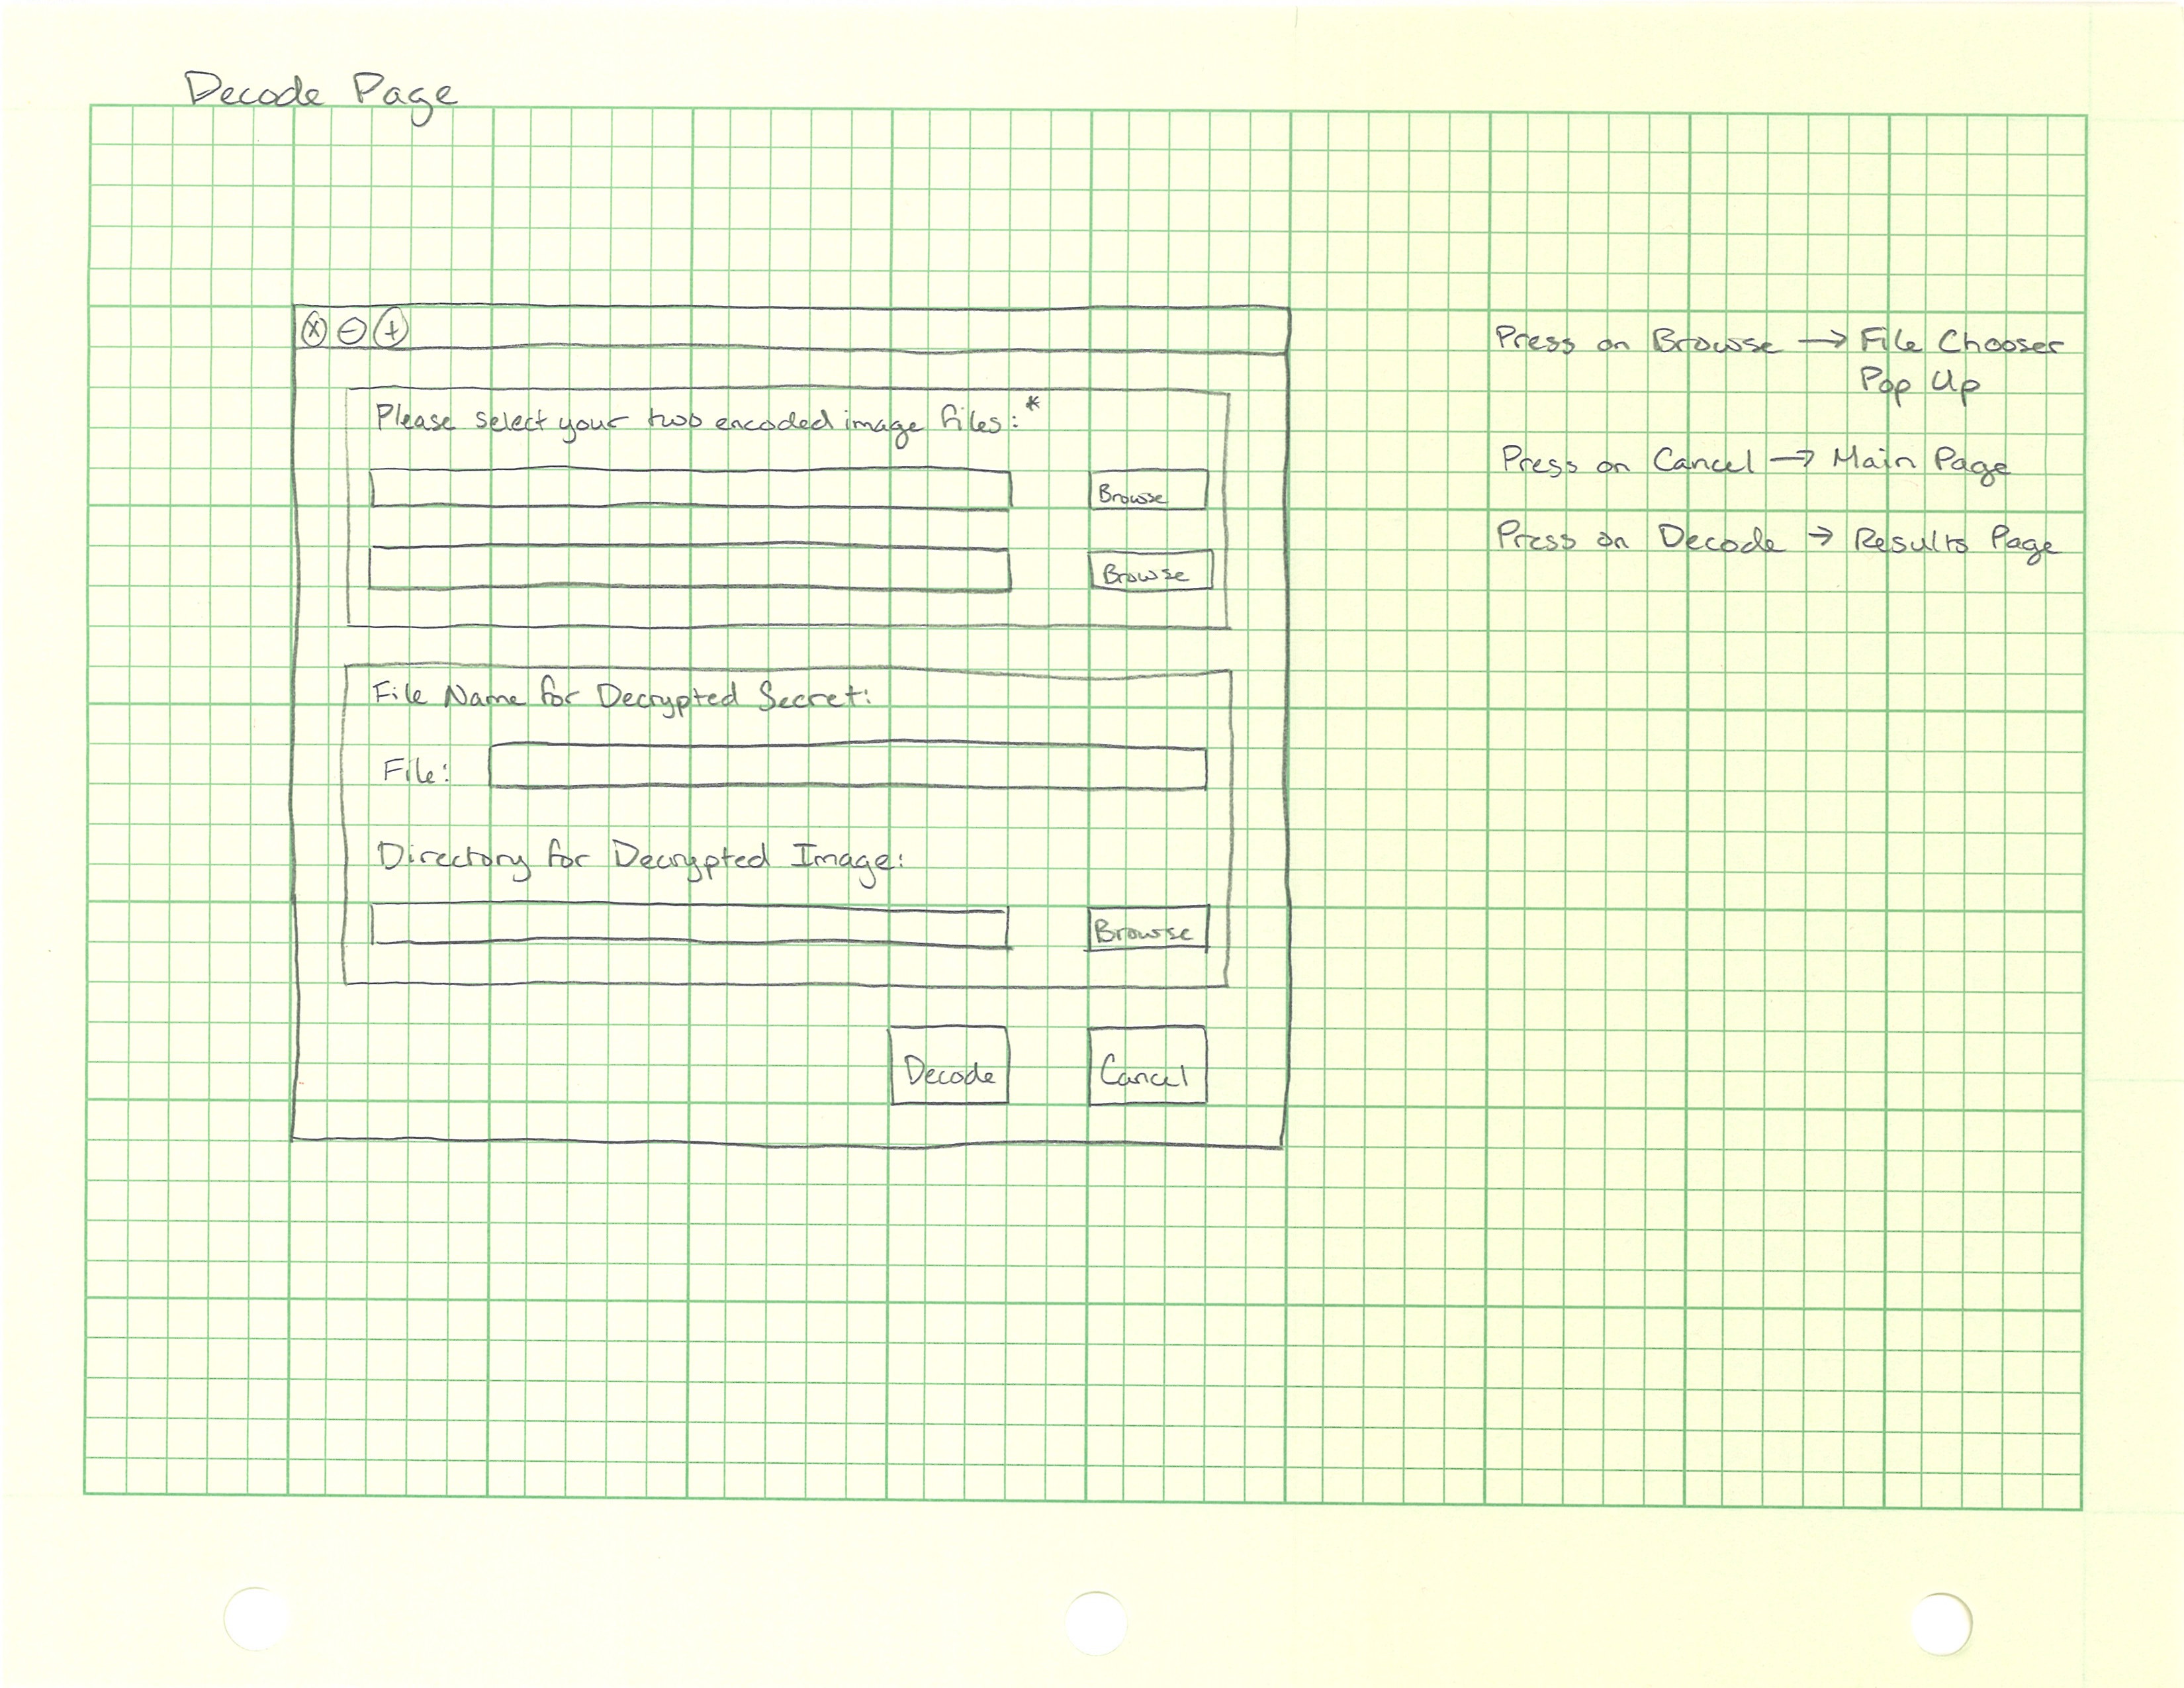 Decode Page
Please select your two encoded image files:*
Browse
Browse
File Name for Decrypted Secret:
File:
Directory for Decrypted Image:
Browse
Decode Cancel
Press on Browse → File Chooser
Pop Up
Press on Cancel → Main Page
Press on Decode → Results Page